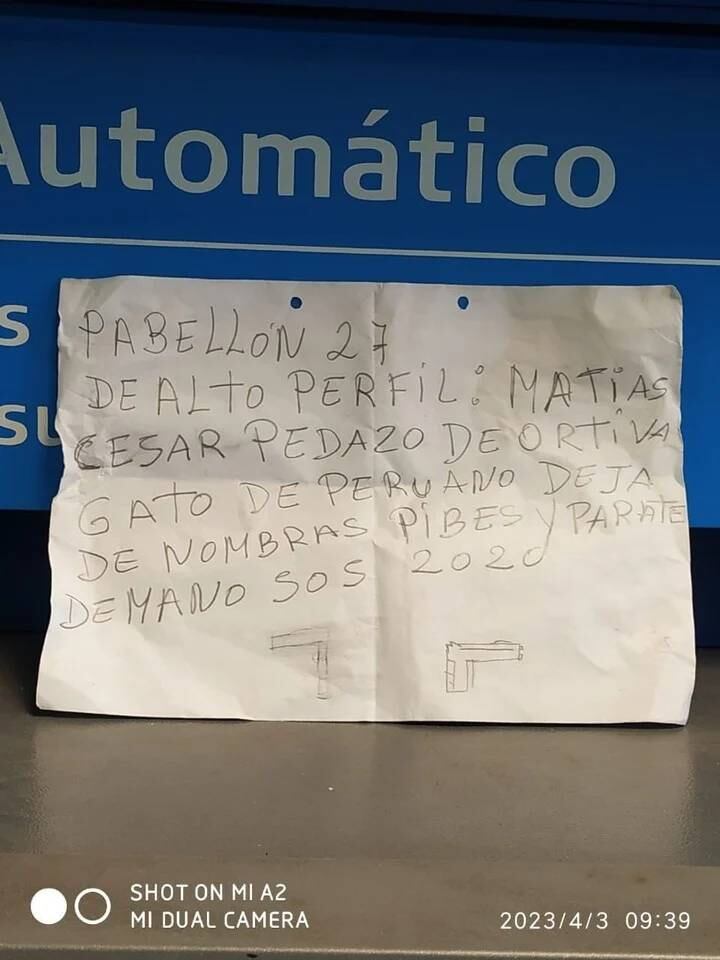 Automático
s
su
PABELLÓN 27
DE ALTO PERFIL: MATIAS
CESAR PEDAZO DE ORTIVA
GATO DE PERUANO DEJA
DE NOMBRAS PIBES Y PARATE
DEMANO SOS 2020
SHOT ON MI A2
MI DUAL CAMERA
2023/4/3 09:39